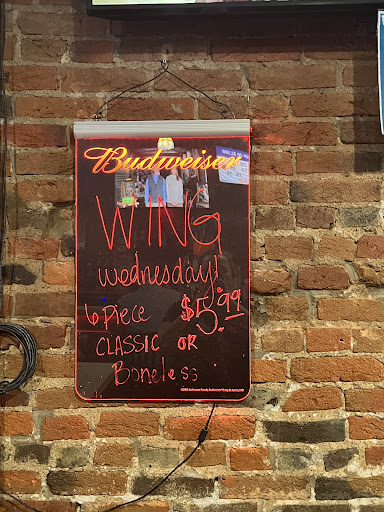 Budweiser
WING
wednesday!
6 Piece $5.99
CLASSIC OR
Boneless